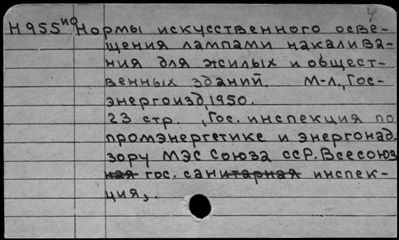 Н955но Нормы искусственного осве-
щения лампами накалива-
ния для жилых и общест-
венных зданий. М-Л., Гос-
энергоизд, 1950.
23 стр. , Гос. инспекция по
промэнергетике и энергонад-
зору МЭС Союза ссР. Всесоюз
ная гос. санитарная инспек-
ция,.